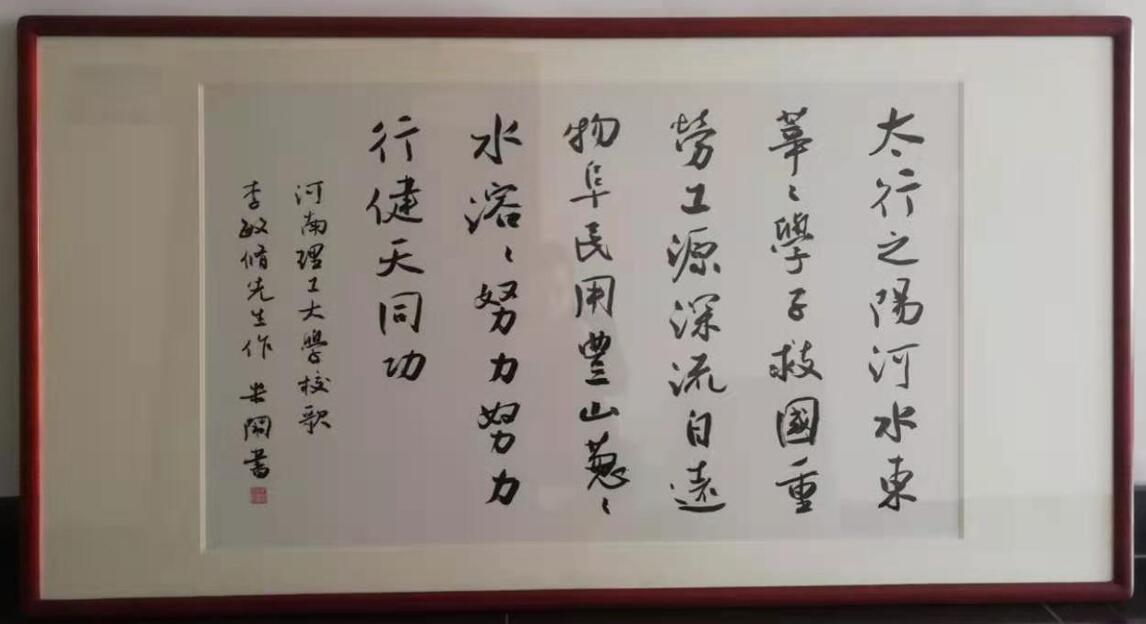 太行之陽河水東
莘〻學子救國重
勞工源深流自遠
物阜民用豐山蔥〻
水溶〻努力努力
行健天同功
河南理工大學校歌
李敏修先生作 米闹書